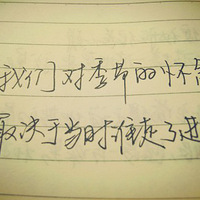 我们对季节的怀
取决于当时谁走了进